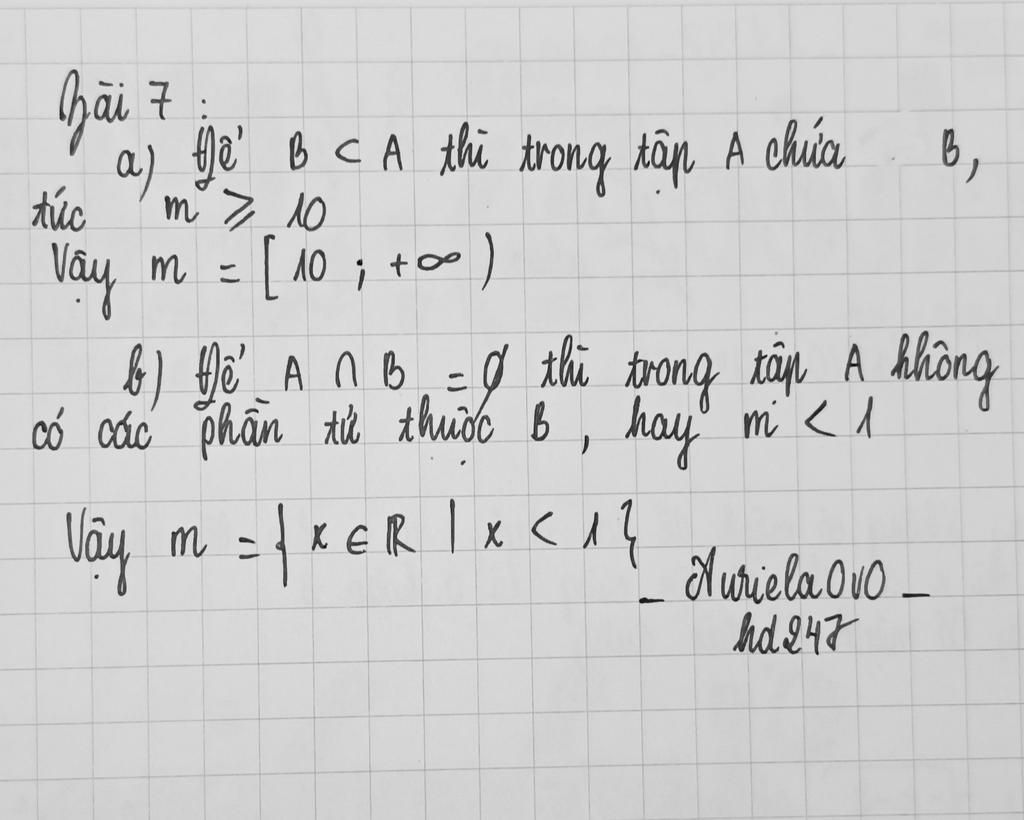 Bài 7 :
a) Để B ⊂ A thì trong tập A chứa B,
tức m ⩾ 10
Vậy m = [ 10 ; +∞ )
b) Để A ∩ B = ∅ thì trong tập A không
có các phần tử thuộc B , hay m < 1
Vậy m = { x ∈ ℝ | x < 1 }
_ Auriela0v0 _
hd247